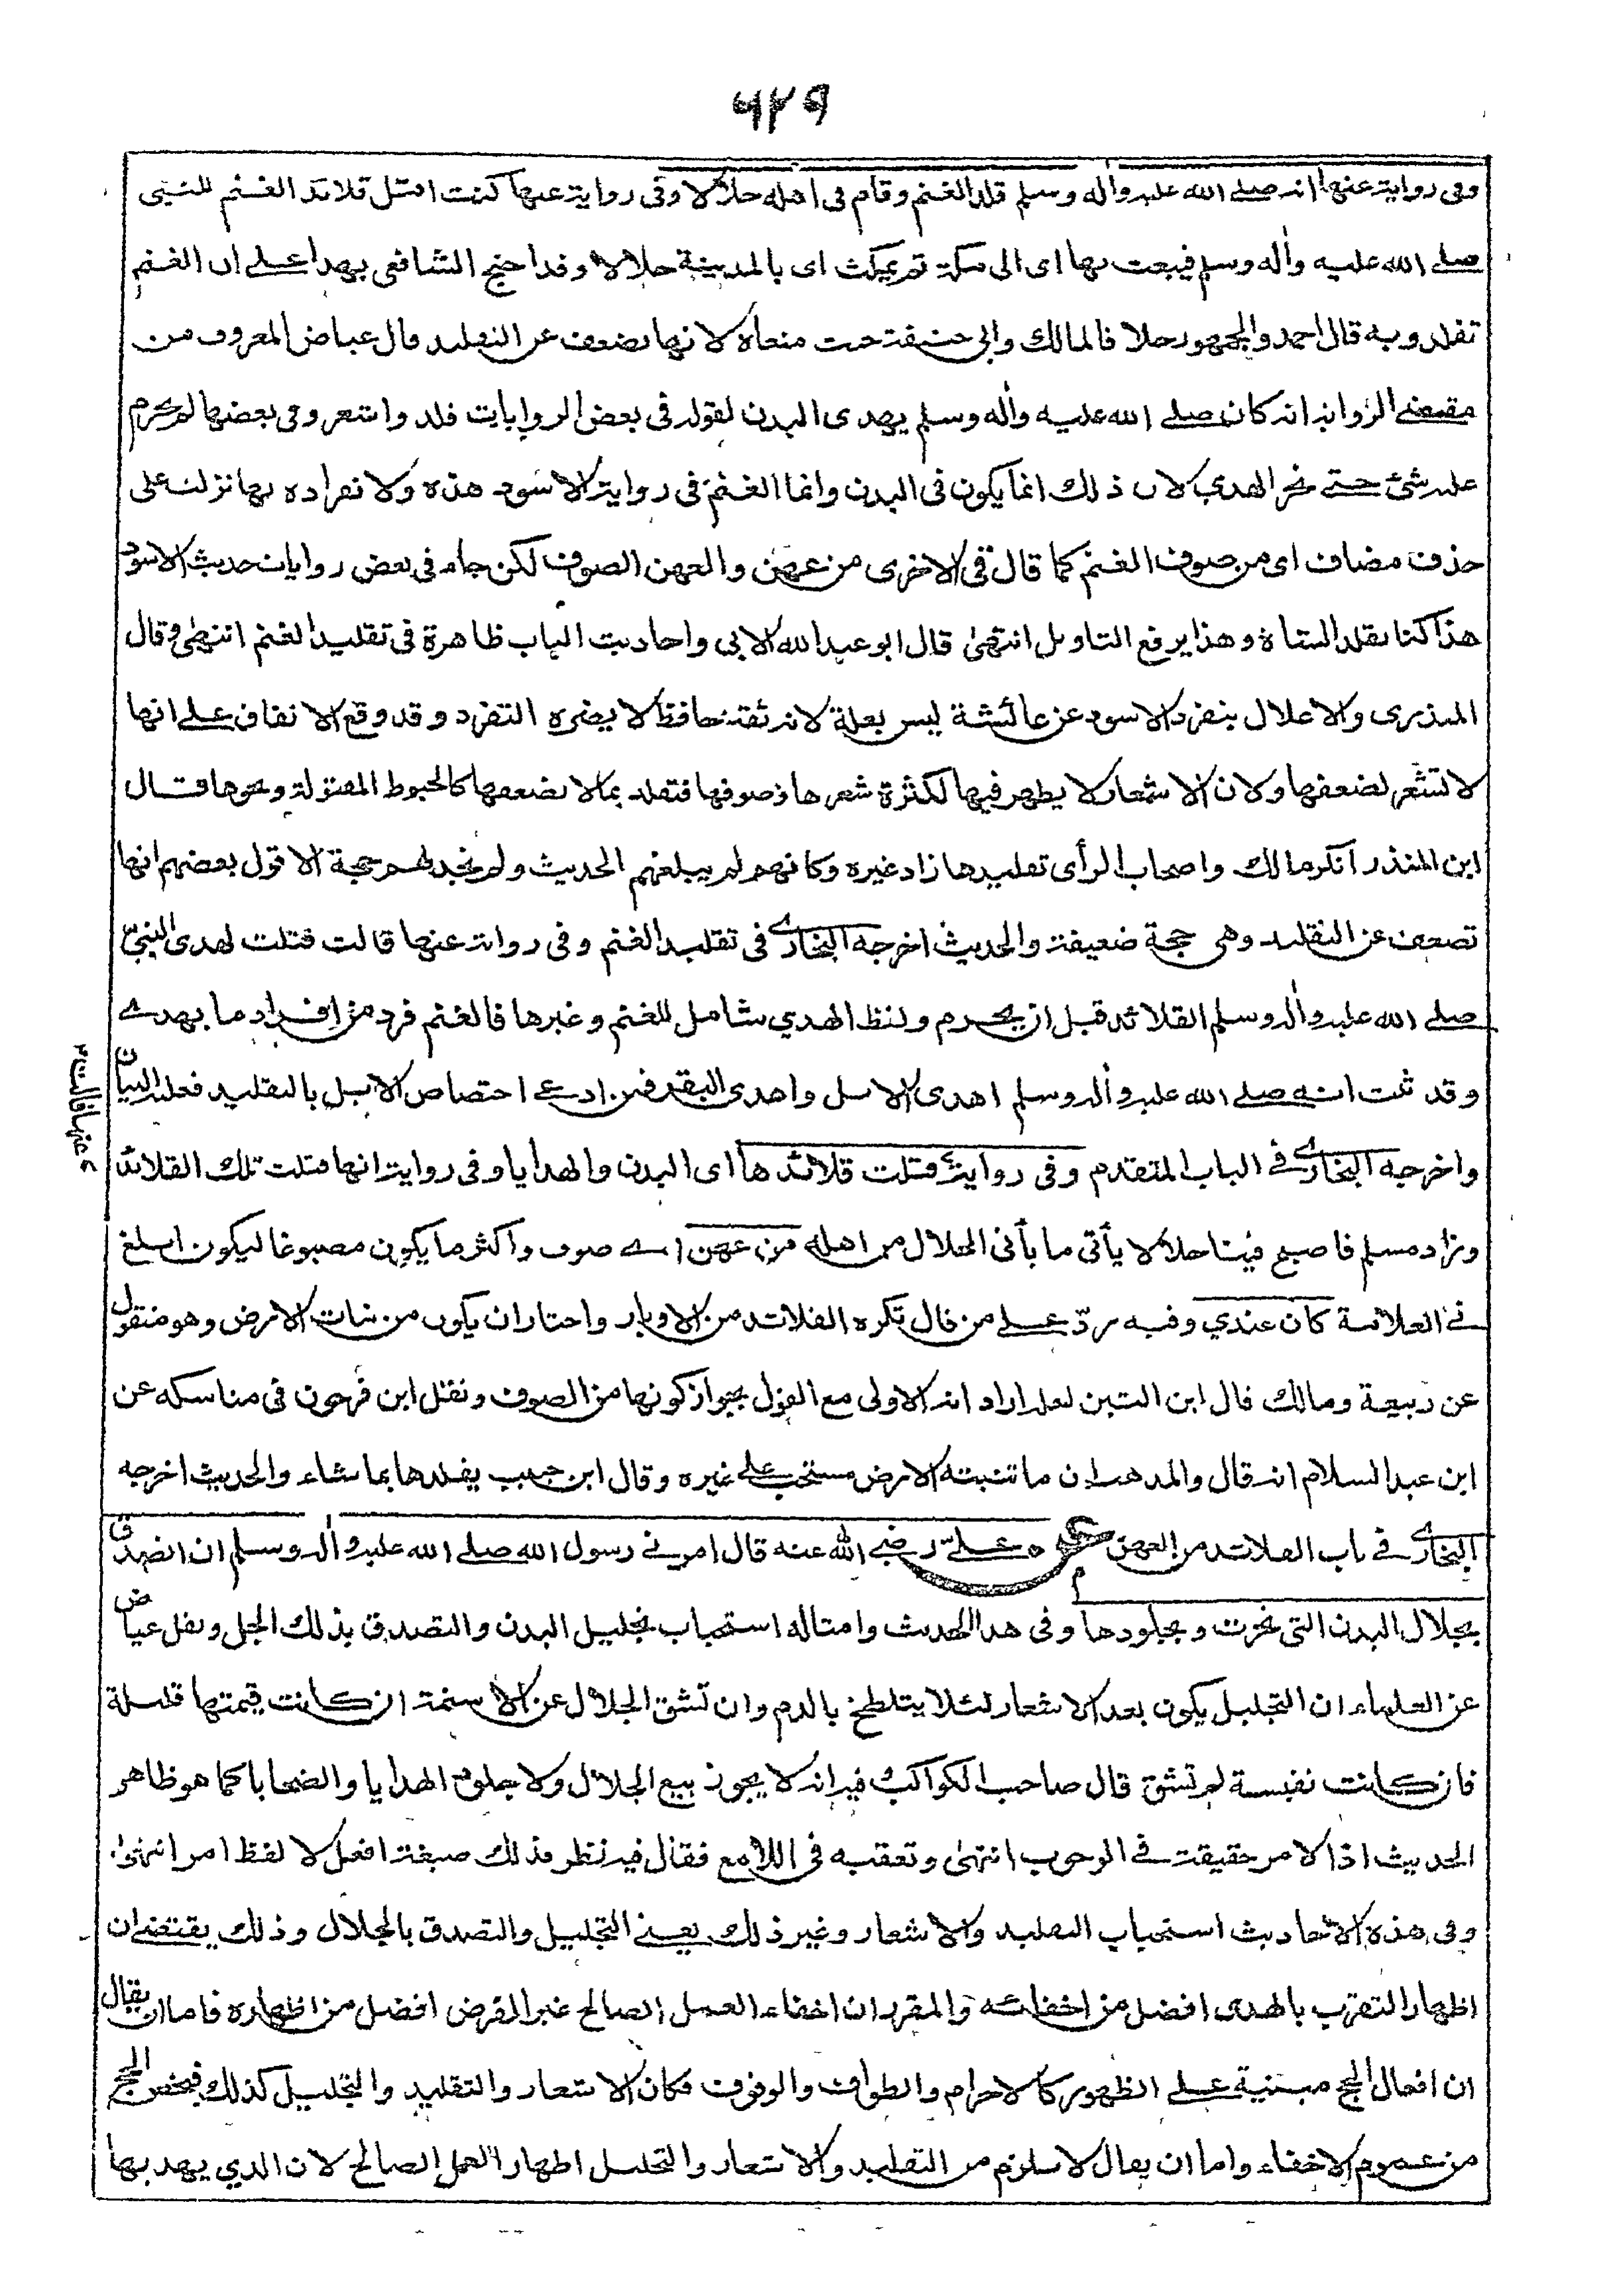 ٦٢٩
وفى رواية عنها انه صلے الله عليه واله وسلم قلد الغنم وقام فى اهله حلالا وفى رواية عنها كنت افتل قلائد الغنم للنبى
صلے الله عليه واله وسلم فيبعث بها اى الى مكة ثم يمكث اى بالمدينة حلالا وقد احتج الشافعى بهذا علے ان الغنم
تقلد وبه قال احمد والجمهور خلافا لمالك وابى حنيفة حيث منعاه لانها تضعف عن التقليد قال عياض المعروف من
مقتضے الرواية انه كان صلے الله عليه واله وسلم يهدى البدن لقوله فى بعض الروايات قلد واشعر وفى بعضها لم يحرم
عليه شئ حتے نحر الهدي لان ذلك انما يكون فى البدن وانما الغنم فى رواية الاسود هذه ولانفراده بها نزلت على
حذف مضاف اى من صوف الغنم كما قال فى الاخرى من عهن والعهن الصوف لكن جاء فى بعض روايات حديث الاسود
هذا كنا نقلد الشاة وهذا يرفع التاويل انتهىٰ قال ابو عبد الله الابى واحاديث الباب ظاهرة فى تقليد الغنم انتهىٰ وقال
المنذرى والاعلال بتفرد الاسود عن عائشة ليس بعلة لانه ثقة حافظ لا يضره التفرد وقد وقع الاتفاق علے انها
لا تشعر لضعفها ولان الاشعار لا يظهر فيها لكثرة شعرها وصوفها فتقلد بما لا يضعفها كالخيوط المفتولة ونحوها قال
ابن المنذر انكر مالك واصحاب الرأى تقليدها زاد غيره وكانهم لم يبلغهم الحديث ولم نجد لهم حجة الا قول بعضهم انها
تضعف عن التقليد وهى حجة ضعيفة والحديث اخرجه البخارے فى تقليد الغنم وفى رواية عنها قالت فتلت لهدى النبىّ
صلے الله عليه واله وسلم القلائد قبل ان يحرم ولفظ الهدي شامل للغنم وغيرها فالغنم فرد من افراد ما يهدے
وقد ثبت انه صلے الله عليه واله وسلم اهدى الابل واهدى البقر فمن ادعے اختصاص الابل بالتقليد فعليه البيان
واخرجه البخارے فے الباب المتقدم وفى رواية فتلت قلائدها اى البدن والهدايا وفى رواية انها فتلت تلك القلائد
عنها قالت
وزاد مسلم فاصبح فينا حلالا يأتى ما يأتى الحلال من اهله من عهن اے صوف واكثر ما يكون مصبوغا ليكون ابلغ
فے العلامة كان عندي وفيه ردّ علے من قال تكره القلائد من الاوبار واختار ان يكون من نبات الارض وهو منقول
عن ربيعة ومالك قال ابن التين لعله اراد انه الاولى مع القول بجواز كونها من الصوف ونقل ابن فرحون فى مناسكه عن
ابن عبد السلام انه قال والمذهب ان ما تنبته الارض مستحب علے غيره وقال ابن حبيب يقلدها بما شاء والحديث اخرجه
البخارے فے باب القلائد من العهن عن علےّ رضے الله عنه قال امرنے رسول الله صلے الله عليه واله وسلم ان اتصدق
بجلال البدن التى نحرت وجلودها وفى هذا الحديث وامثاله استحباب تجليل البدن والتصدق بذلك الجل ونقل عياض
عن العلماء ان التجليل يكون بعد الاشعار لئلا يتلطخ بالدم وان تشق الجلال عن الاسنمة ان كانت قيمتها قليلة
فان كانت نفيسة لم تشق قال صاحب الكواكب فيه انه لا يجوز بيع الجلال ولا جلود الهدايا والضحايا كما هو ظاهر
الحديث اذ الامر حقيقة فے الوجوب انتهىٰ وتعقبه فى اللامع فقال فيه نظر فذلك صيغة افعل لا لفظ امر انتهىٰ
وفى هذه الاحاديث استحباب التقليد والاشعار وغير ذلك يعنے التجليل والتصدق بالجلال وذلك يقتضے ان
اظهار التقرب بالهدى افضل من اخفائه والمقرر ان اخفاء العمل الصالح غير الفرض افضل من اظهاره فاما ان يقال
ان افعال الحج مبنية علے الظهور كالاحرام والطواف والوقوف فكان الاشعار والتقليد والتجليل كذلك فيخص الحج
من عموم الاخفاء واما ان يقال لا يلزم من التقليد والاشعار والتجليل اظهار العمل الصالح لان الذي يهديها